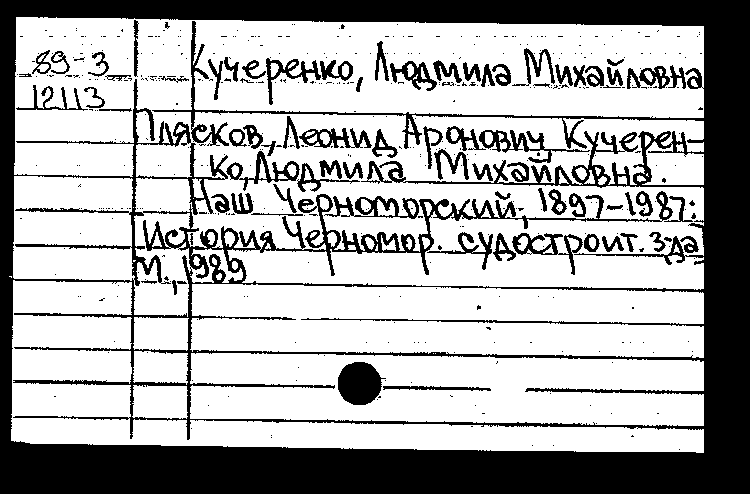 89-3 Кучеренко, Людмила Михайловна
12113
Плясков, Леонид Аронович, Кучерен-
ко, Людмила Михайловна.
Наш Черноморский, 1897-1987:
[История Черномор. судостроит. з-да]
М., 1989